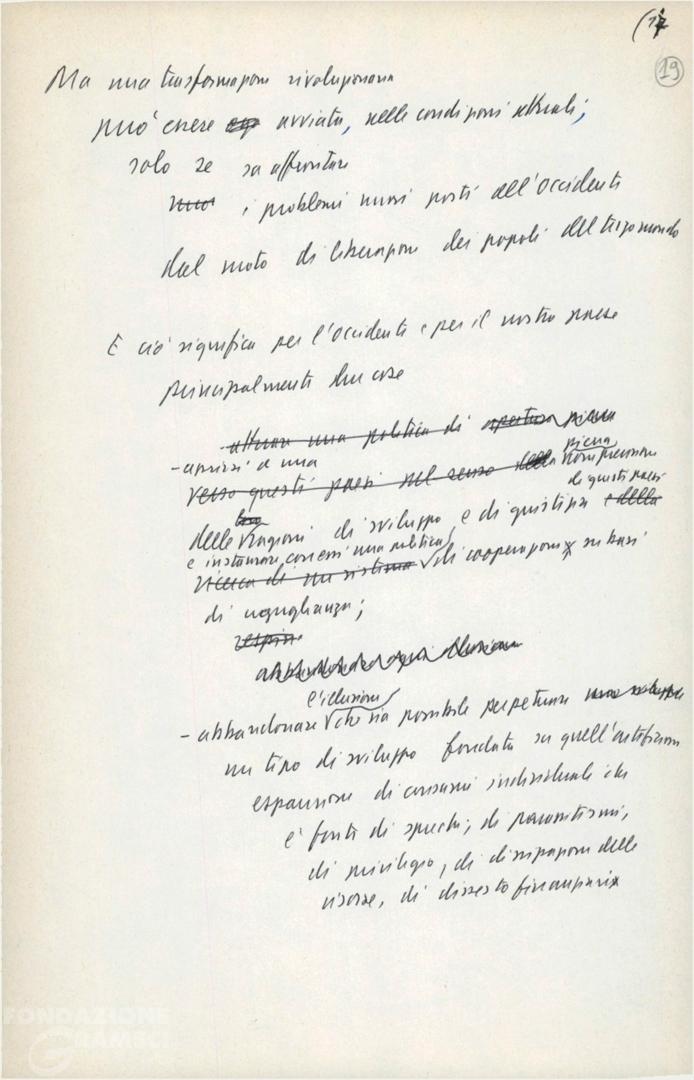 (17
19
Ma una trasformazione rivoluzionaria
può essere avviata, nelle condizioni attuali,
solo se sa affrontare
i problemi nuovi posti all'Occidente
dal moto di liberazione dei popoli del terzo mondo
E ciò significa per l'Occidente e per il nostro paese
principalmente due cose
attuare una politica di apertura piena
- aprirsi a una piena
verso questi paesi nel senso della comprensione
di questi paesi
delle ragioni di sviluppo e di giustizia e della
e instaurare con essi una politica
ricerca di un sistema di cooperazione su basi
di uguaglianza;
l'illusione
- abbandonare che sia possibile perpetuare
un tipo di sviluppo fondato su quell'artificiosa
espansione di consumi individuali che
è fonte di sprechi, di parassitismi,
di privilegio, di dissipazione delle
risorse, di dissesto finanziario
FONDAZIONE
GRAMSCI